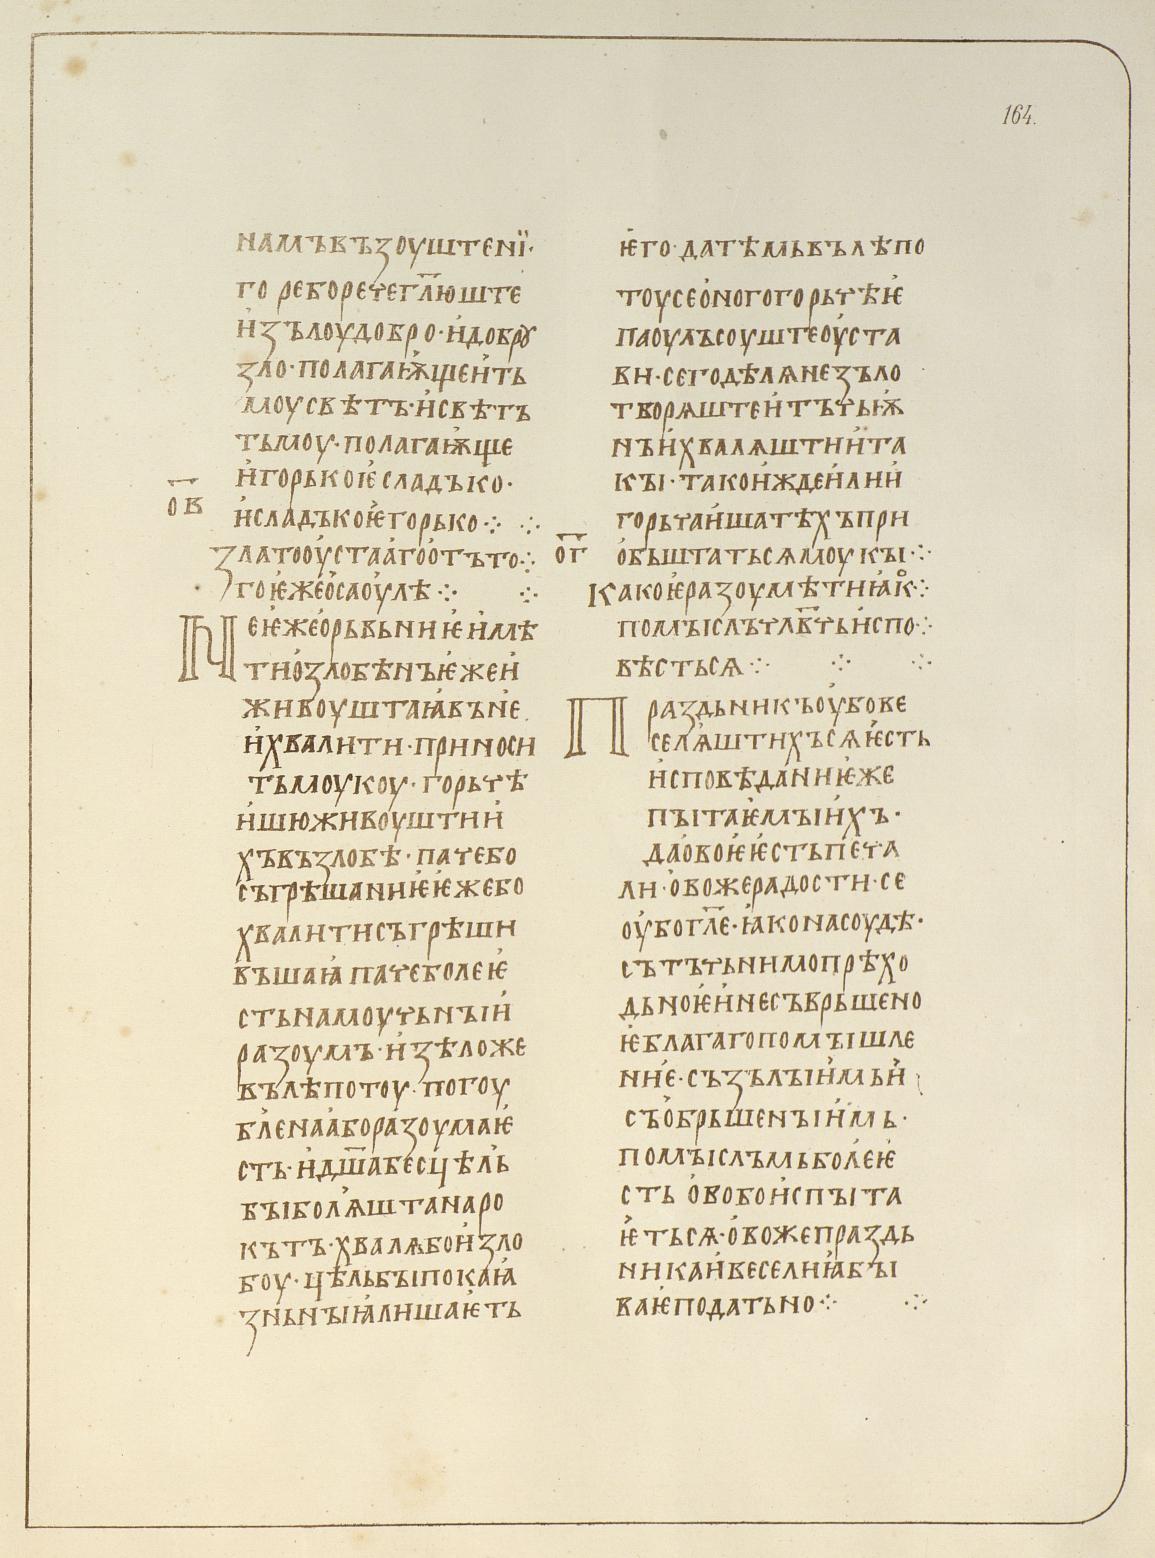 164.
намъвъзоуштенї·
го реборечегл҃юште
и҆зълоудобро·и҆добрꙋ
зло·полагаѭщеи҆ть
моусвѣтъ·и҆свѣтъ
тьмоу·полагаѭще
и҆горькоѥсладъко·
ов҃
и҆сладъкоѥ҆горько⁘ ⁘
златооу҆стаа҆гоо҆тъто⁘
гоѥ҆жео҆саоу҆лѣ⁘ ⁘
Неѥ҆жео҆рьвьниѥи҆мѣ
тио҆злобѣнъѥ҆жеи҆
живоуштаꙗвъне
и҆хвалити·приноси
тьмоукоу·горьчѣ
и҆шюживоуштии҆
хъвъзлобѣ·пачебо
съгрѣшаниѥѥ҆жебо
хвалитисъгрѣши
въшаꙗ҆пачеболеѥ҆
стьнамоучьнъіи҆
разоумъ·и҆зѣложе
вълѣпотоу·погоу
бленаа҆боразоумаѥ҆
сть·и҆дш҃абесцѣль
въіболѧ҆штанаро
кътъ·хвалѧбои҆зло
боу·цѣльбъіпокаꙗ
зньнъіꙗ҆лишаѥ҆ть
ѥ҆го·датѣмьвълѣпо
тоусео҆ногогорьчѣѥ҆
паоулъсоуштеоу҆ста
ви·сегодѣлꙗнезъло
творѧштеи҆тъчьѭ
нъи҆хвалѧштии҆та
къі·такои҆ждеи҆лии҆
горьчаи҆шатѣхъпри
ог҃
о҆бьштатьсѧмоукъі⁘
Какоѥ҆разоумѣтиꙗкⷪ⁘
помъіслъчл҃вчьи҆спо⁘
вѣстьсѧ⁘ ⁘ ⁘
Праздьникъоу҆бове
селѧ҆штихъсѧѥ҆сть
и҆сповѣданиѥ҆же
пъітаѥ҆мъіи҆хъ·
дао҆воѥѥ҆стьпеча
ли·о҆вожерадости·се
оу҆богл҃е·ꙗ҆конасоудѣ·
сътъчьнимопрѣхо
дьноѥ҆и҆несъврьшено
ѥ҆благагопомъішле
ние·съзълъіи҆мьи҆
съо҆брьшенъіи҆мь·
помъісльмьболеѥ҆
сть о҆вобои҆спъіта
ѥ҆тьсѧ·о҆вожепраздь
никаи҆веселиꙗбъі
ваѥ҆податьно⁘ ⁘